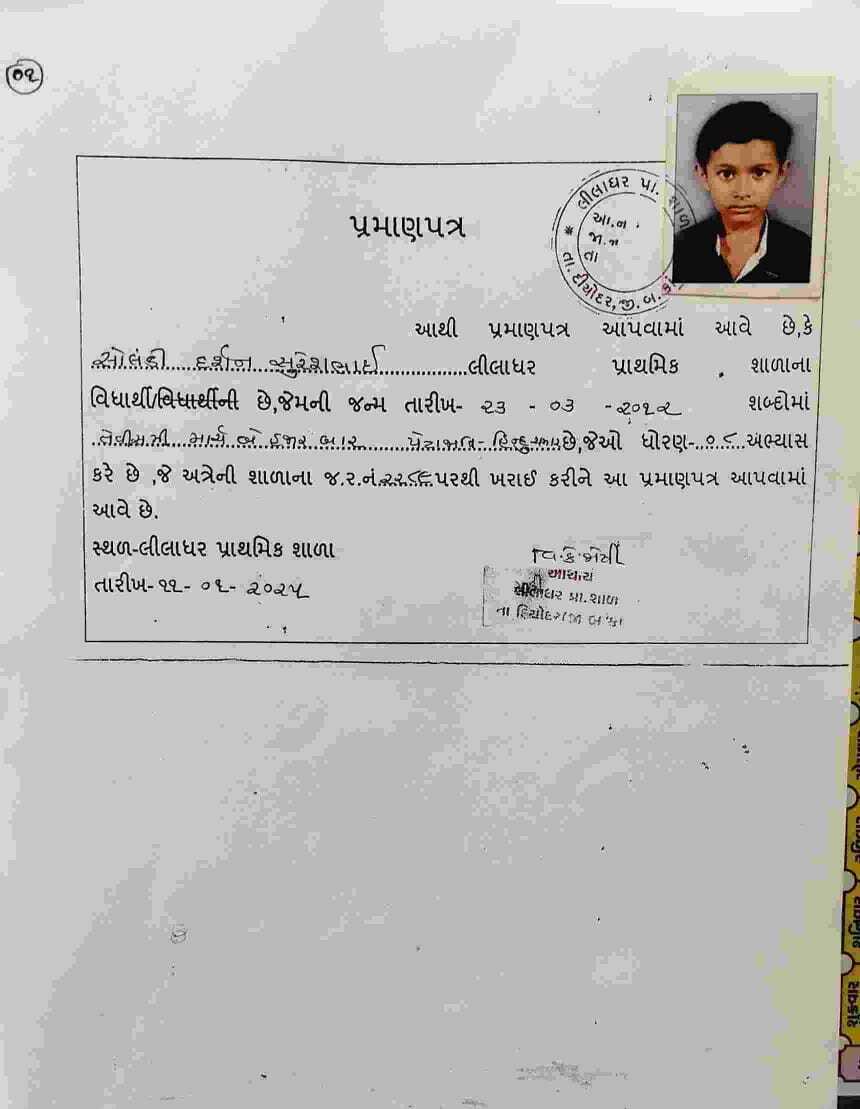 ૦૧
લીલાધર પ્રા. શાળ
આ.ન
જા.ન
તા
તા.દીયોદર,જી.બ.કાં
પ્રમાણપત્ર
આથી પ્રમાણપત્ર આપવામાં આવે છે,કે
સોલંકી દર્શન સુરેશભાઈ લીલાધર પ્રાથમિક શાળાના
વિધાર્થી/વિધાર્થીની છે,જેમની જન્મ તારીખ- ૨૩ - ૦૩ -૨૦૧૨ શબ્દોમાં
તેવીસમી માર્ચ બે હજાર બાર પેટાજાત- હિન્દુ છે,જેઓ ધોરણ-૦૮ અભ્યાસ
કરે છે ,જે અત્રેની શાળાના જ.ર.નં.૨૨૮૯ પરથી ખરાઈ કરીને આ પ્રમાણપત્ર આપવામાં
આવે છે.
સ્થળ-લીલાધર પ્રાથમિક શાળા
તારીખ-૧૧- ૦૬- ૨૦૨૫
આચાર્ય
લીલાધર પ્રા.શાળ
તા દિયોદર જી બ કાં
શનિવાર
શુક્રવાર